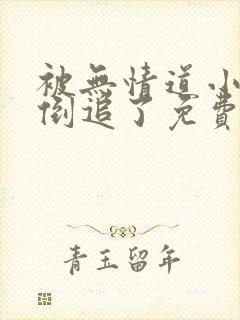 被無情道小
倒追了免費
青玉留年